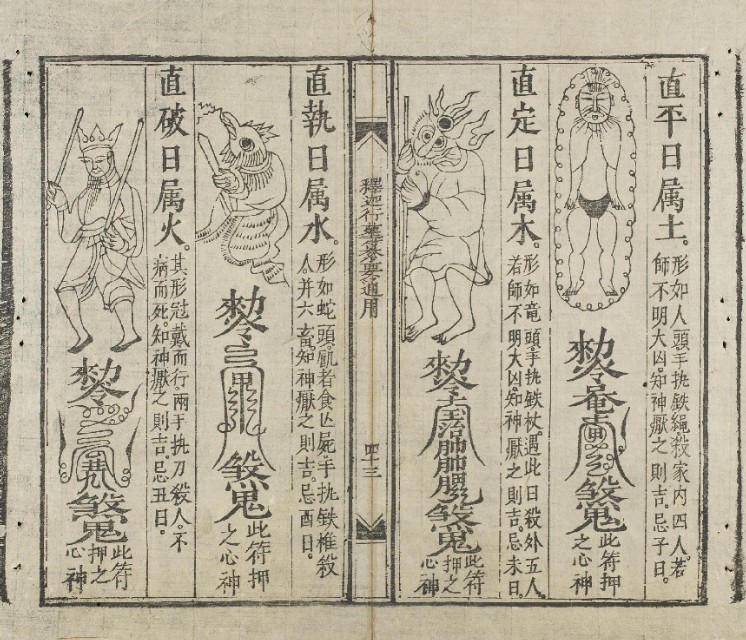 直平日属土。形如人頭手执铁繩殺家内四人。若
師不明大凶。知神厭之則吉。忌子日。
勅令
煞鬼
此符押
之心神
直定日属木。形如竜頭。手执铁杖。遇此日殺外五人。
若師不明大凶。知神厭之則吉。忌未日。
勅令
煞鬼
此符
押之
心神
釋迦行
要通用
四十三
直執日属水。形如蛇頭。
者食亾屍手执铁椎殺
人。并六畜。知神厭之則吉。忌酉日。
勅令
煞鬼
此符押
之心神
直破日属火。其形冠戴而行。兩手执刀殺人。不
病而死。知神厭之則吉。忌丑日。
勅令
煞鬼
此符
押之
心神